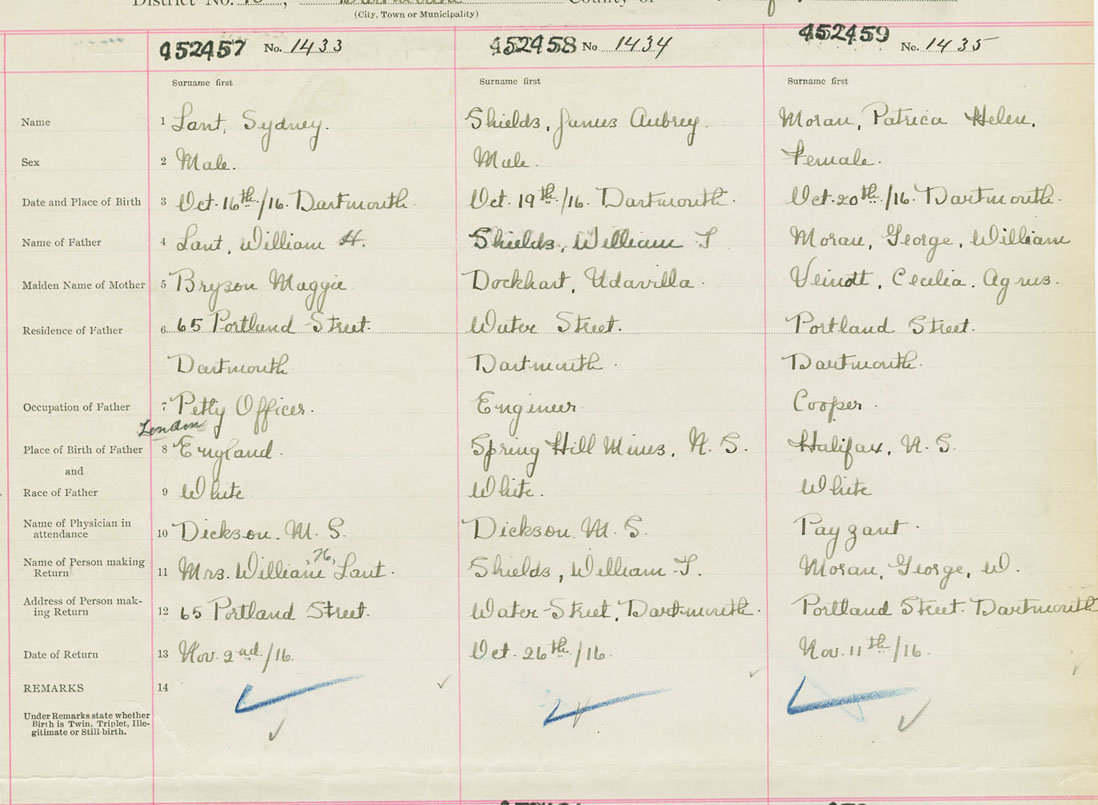 District No.
County of
(City, Town or Municipality)
452457 No. 1433 452458 No 1434 452459 No. 1435
Surname first Surname first Surname first
Name 1 Lant, Sydney. Shields, James Aubrey. Moran, Patrica Helen.
Sex 2 Male. Male. Female.
Date and Place of Birth 3 Oct. 16th/16. Dartmouth. Oct. 19th/16. Dartmouth. Oct. 20th/16. Dartmouth.
Name of Father 4 Lant, William H. Shields, William T Moran, George, William
Maiden Name of Mother 5 Bryson Maggie Dockhart, Udavilla. Veindt, Cecilia. Agnus.
Residence of Father 6 65 Portland Street. Water Street. Portland Street.
Dartmouth Dartmouth. Dartmouth.
Occupation of Father 7 Petty Officer. Engineer Cooper.
London
Place of Birth of Father 8 England. Spring Hill Mines, N. S. Halifax, N. S.
and
Race of Father 9 White White. White
Name of Physician in
attendance 10 Dickson. M. S. Dickson. M. S. Payzant.
Name of Person making
Return 11 Mrs. William H, Lant. Shields, William T. Moran, George, W.
Address of Person mak-
ing Return 12 65 Portland Street. Water Street, Dartmouth. Portland Street. Dartmouth
Date of Return 13 Nov. 2nd/16. Oct. 26th/16. Nov. 11th/16.
REMARKS 14
Under Remarks state whether
Birth is Twin, Triplet, Ille-
gitimate or Still birth.